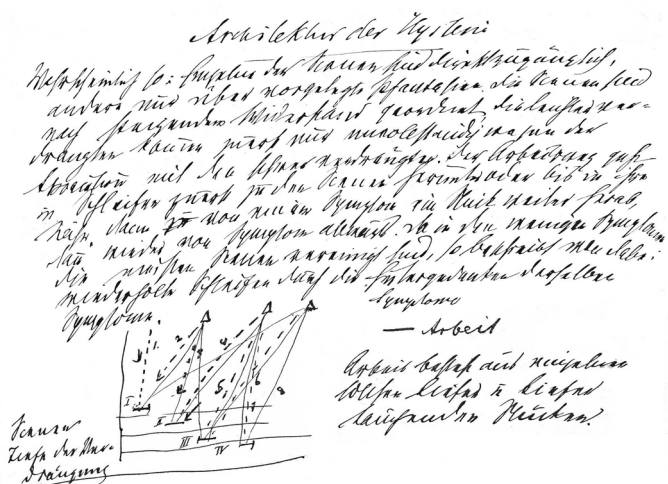 Architektur der Hysterie
Wahrscheinlich so: Einzelne der Scenen sind direkt zugänglich,
andere nur über vorgelegte Phantasien. Die Scenen sind
nach steigendem Widerstand geordnet, die leichter ver-
drängten kommen zuerst nur unvollständig wegen der
Association mit den schwer verdrängten. Der Arbeitsweg geht
in Schleifen zuerst zu den Scenen herunter oder bis in ihre
Nähe, dann von einem Symptom ein Stück weiter herab,
dann wieder von Symptom abwärts. Da in den wenigen Symptomen
die meisten Scenen vereinigt sind, so beschreibt man dabei
wiederholte Schleifen durch die Hintergedanken derselben
Symptome
Symptome.
— Arbeit
Arbeit besteht aus einzelnen
solchen tiefer u tiefer
laufenden Stücken.
I II III IV
Scenen
Tiefe der Ver-
drängung